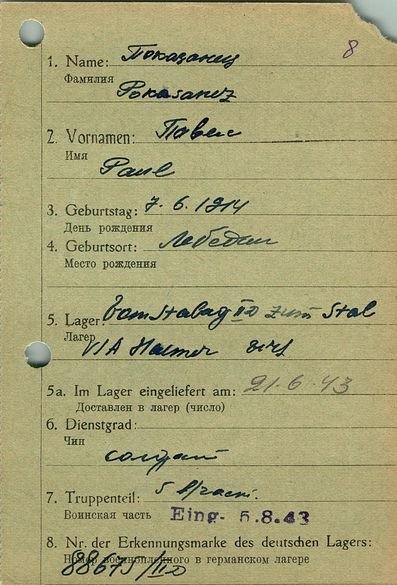 8
1. Name: Показанец
Фамилия
Pokasanez
2. Vornamen: Павел
Имя
Paul
3. Geburtstag: 7.6.1914
День рождения
4. Geburtsort: Лебедин
Место рождения
5. Lager: vom Stalag II D zum Stal
Лагер
VI A Hemer
5a. Im Lager eingeliefert am: 21.6.43
Доставлен в лагер (число)
6. Dienstgrad:
Чин
солдат
7. Truppenteil: 5
Воинская часть Eing. 5.8.43
8. Nr. der Erkennungsmarke des deutschen Lagers:
Номер военнопленного в германском лагере
/II D